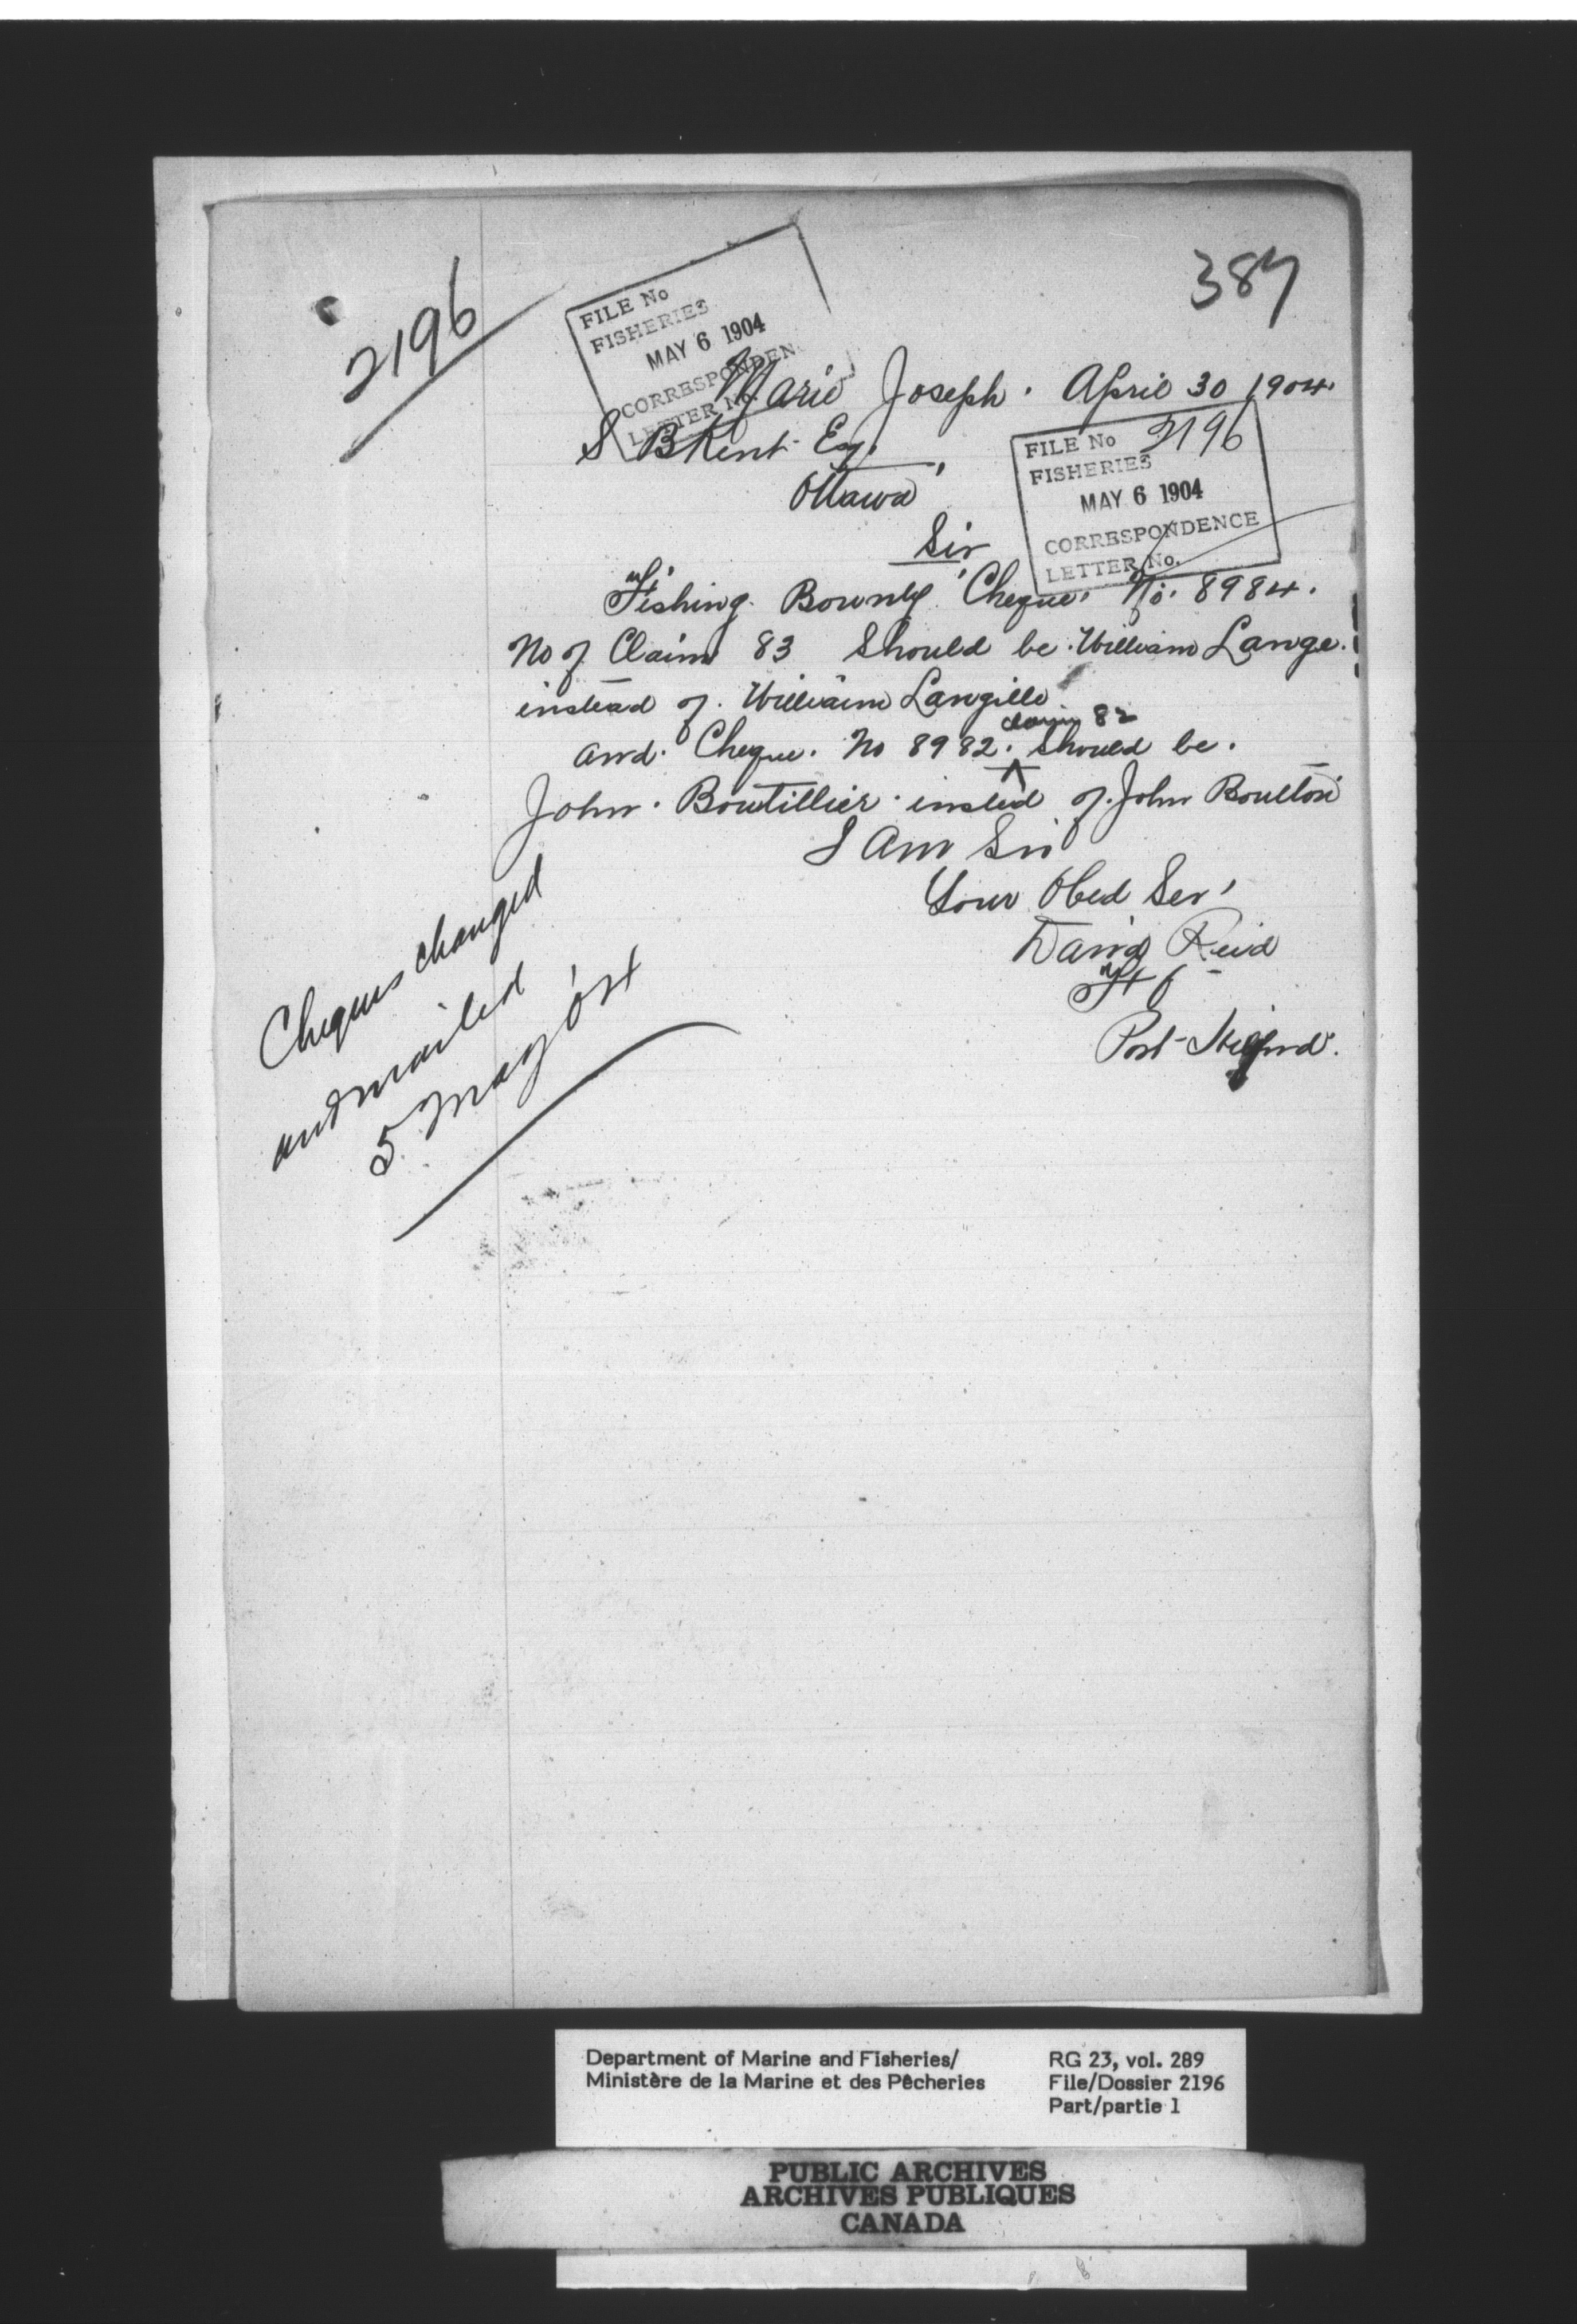 2196
387
FILE No
FISHERIES
MAY 6 1904
CORRESPONDEN
LETTER No.
Marie Joseph. April 30 1904.
S B Kent Esq.
Ottawa
FILE No 2196
FISHERIES
MAY 6 1904
CORRESPONDENCE
LETTER No.
Sir
Fishing Bounty Cheque. No. 8984.
No of Claim 83 Should be William Lange.
instead of. William Langille
claim 82
and. Cheque. No 8982. Should be.
John. Boutillier insted of. John Boulton
I Am Sir
Your Obed Ser
David Reid
Port
Cheques changed
and mailed
5 May 04
Department of Marine and Fisheries/
Ministère de la Marine et des Pêcheries
RG 23, vol. 289
File/Dossier 2196
Part/partie 1
PUBLIC ARCHIVES
ARCHIVES PUBLIQUES
CANADA